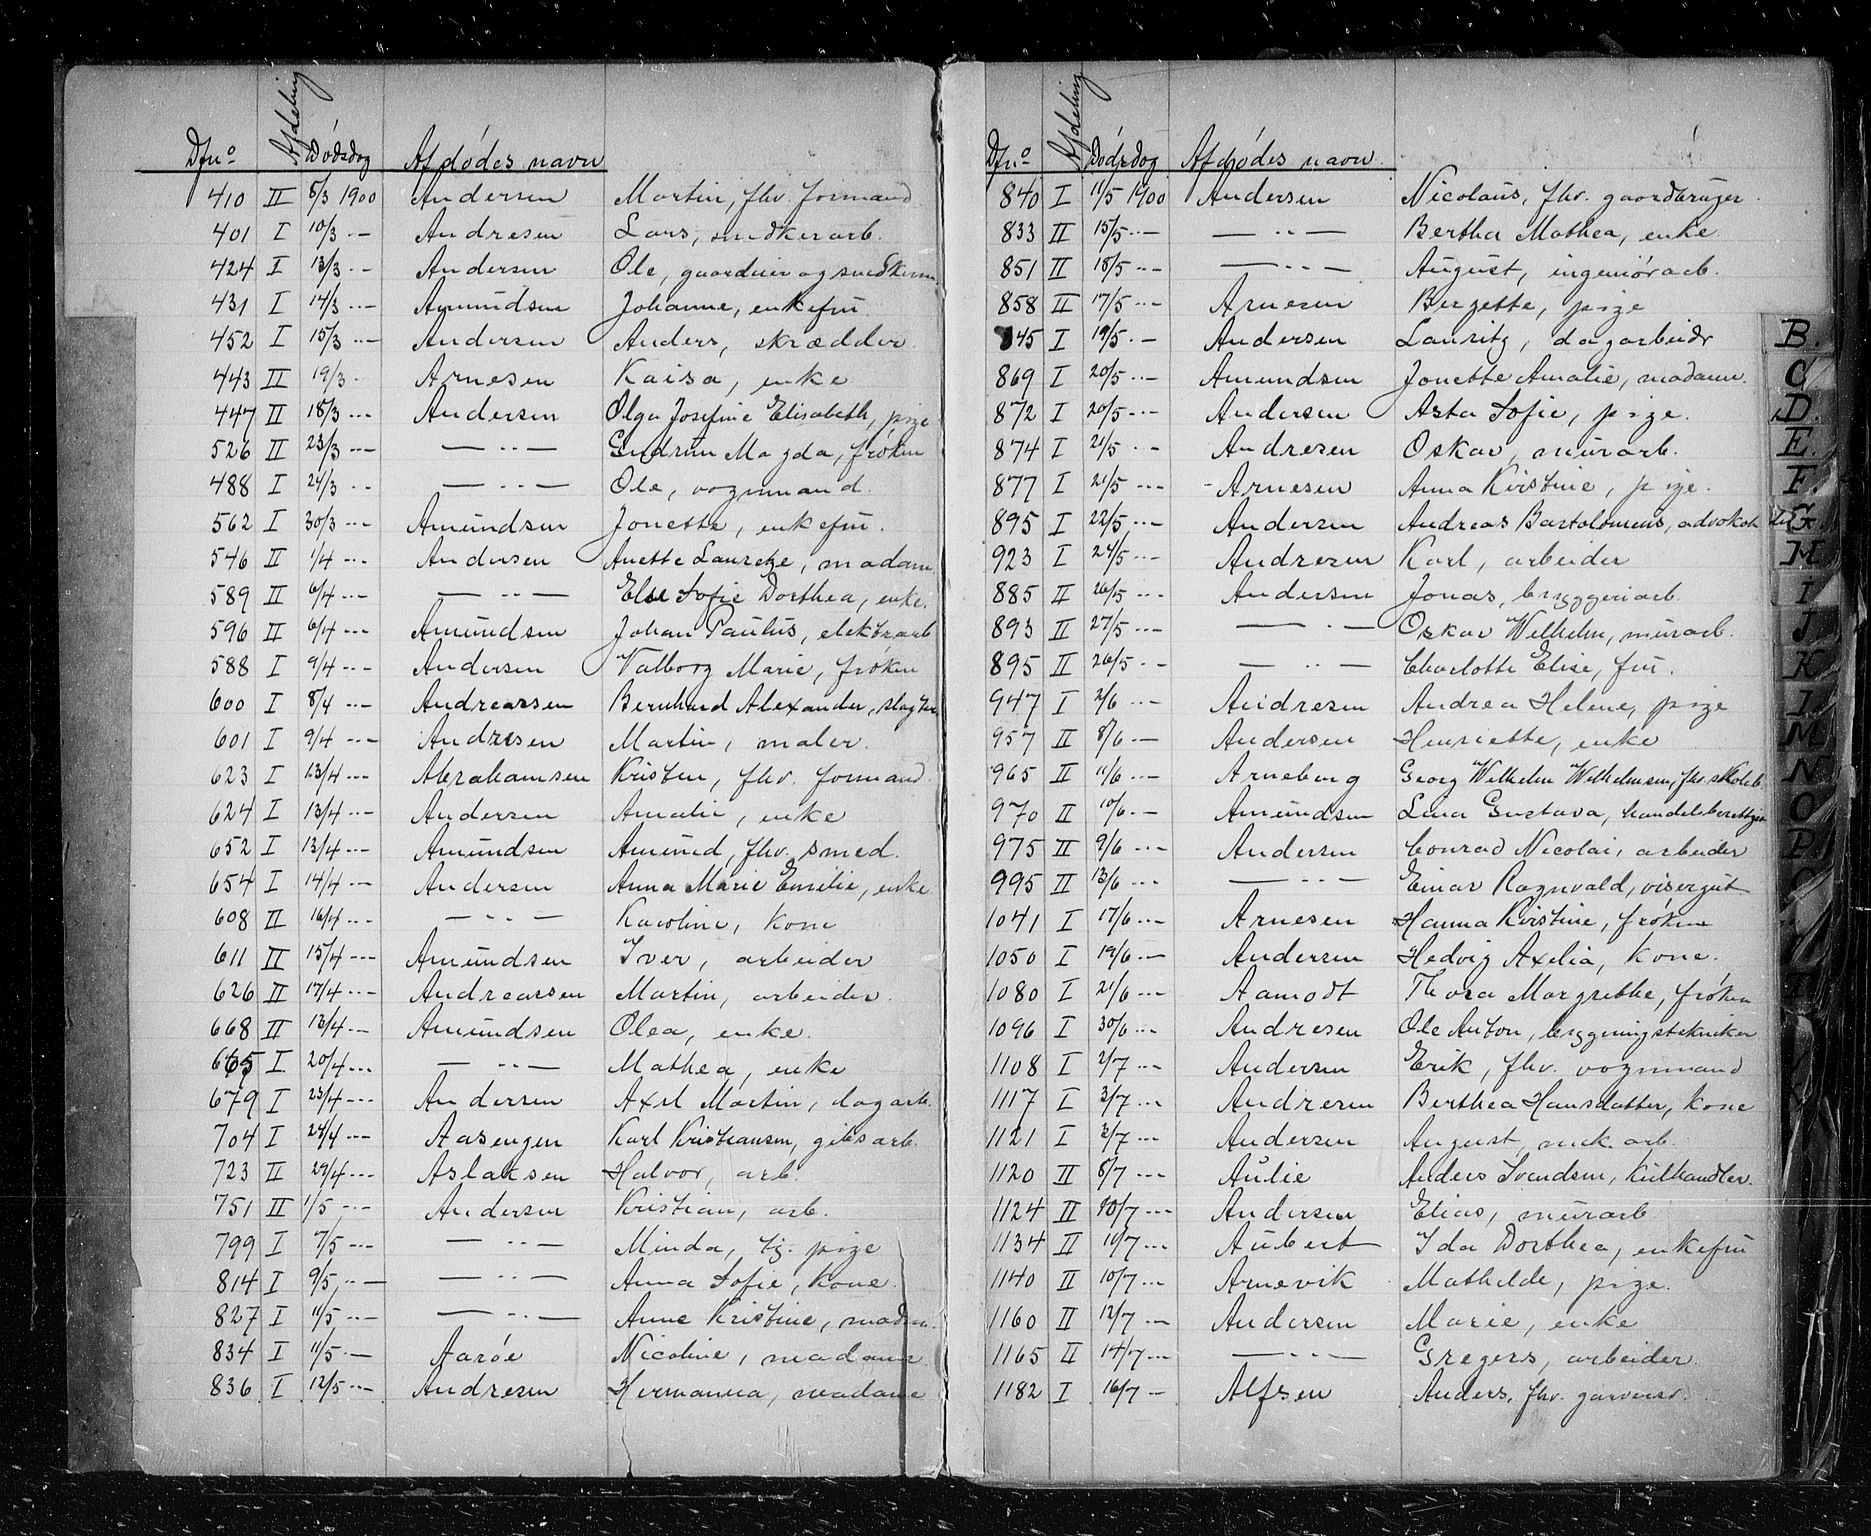 Dfno Afdeling Dödsdag Afdödes navn
410 II 8/3 1900 Andersen Martin, fhv. formand
401 I 10/3 -··- Andresen Lars, snedkerarb.
424 I 13/3 -··- Andersen Ole, gaardeier og snedkerm
431 I 14/3 -··- Amundsen Johanne, enkefru
452 I 15/3 -··- Andersen Anders, skrædder.
443 II 19/3 - Arnesen Kaisa, enke
447 II 18/3 -··- Andersen Olga Josefine Elisabeth, pige
526 II 23/3 -··- — ·· — Gudrun Magda, frøken
488 I 24/3 ·· — ·· — Ole, vognmand.
562 I 30/3 -··- Amundsen Jonette, enkefru.
546 II 1/4 -··- Andersen Anette Lauretze, madam
589 II 6/4 -··- — ·· — Else Sofie Dorthea, enke.
596 II 6/4 -··- Amundsen Johan Paulus, elektrarb
588 I 9/4 -··- Andersen Valborg Marie, frøken
600 I 8/4 -··- Andreassen Bernhard Alexander, slagter
601 I 9/4 -··- Andresen Martin, maler.
623 I 13/4 -··- Abrahamsen Kristen, fhv. formand.
624 I 13/4 -··- Andersen Amalie, enke
652 I 13/4 -··- Amundsen Amund, fhv. smed.
654 I 14/4 -··- Andersen Anna Marie Emilie, enke
608 II 16/4 -··- — ·· — Karoline, kone
611 II 15/4 -··- Amundsen Iver, arbeider
626 II 17/4 -··- Andreassen Martin, arbeider.
668 II 13/4 -··- Amundsen Olea, enke.
665 I 20/4 -··- — ·· — Mathea, enke
679 I 23/4 -··- Andersen Axel Martin, dagarb.
704 I 24/4 -··- Aasengen Karl Kristiansen, gibsarb.
723 II 29/4 -··- Aslaksen Halvor, arb.
751 II 1/5 -··- Andersen Kristian, arb.
799 I 7/5 -··- — ·· — Minda, tj. pige
814 I 9/5 ··- — ·· — Anna Sofie, kone.
827 I 11/5 -··- — ·· — Anne Kristine, madam.
834 I 11/5 ·- Aarøe Nicoline, madame.
836 I 12/5 -··- Andresen Hermanna, madame
Dfno Afdeling Dödsdag Afdödes navn.
840 I 11/5 1900 Andersen Nicolaus, fhv. gaardbruger.
833 II 15/5 -··- — ·· — Bertha Mathea, enke.
851 II 18/5 -··- — ·· — August, ingeniörarb.
858 II 17/5 -··- Arnesen Bergette, pige
845 I 19/5 ·- Andersen Lauritz, dagarbeidr
869 I 20/5 ··- Amundsen Jonette Amalie, madam.
872 I 20/5 -··- Andersen Asta Sofie, pige.
874 I 21/5 ··- Andresen Oskar, murarb.
877 I 21/5 -··- Arnesen Anna Kirstine, pige.
895 I 22/5 -··- Andersen Andreas Bartolomeus, advokat
923 I 24/5 -··- Andresen Karl, arbeider
885 II 26/5 -··- Andersen Jonas, bryggeriarb.
893 II 27/5 -··- — · — Oskar Wilhelm, murarb.
895 II 26/5 ·- — ·· — Charlotte Elise, fru.
947 I 2/6 -··- Andresen Andrea Helene, pige
957 II 8/6 - Andersen Henriette, enke
965 II 11/6 - Arneberg Georg Wilhelm Wilhelmsen, fhv. skoleb.
970 II 10/6 ·- Amundsen Lina Gustava, handelsberettiget
975 II 9/6 -··- Andersen Conrad Nicolai, arbeider
995 II 13/6 -··- — ·· — Einar Ragnvald, visergut
1041 I 17/6 -··- Arnesen Hanna Kirstine, frøken
1050 I 19/6 -··- Andersen Hedvig Axelia, kone.
1080 I 21/6 -··- Aamodt Thora Margrethe, frøken
1096 I 30/6 -··- Andresen Ole Anton, bygningstekniker
1108 I 2/7 -··- Andersen Erik, fhv. vognmand
1117 I 3/7 -··- Andresen Berthea Hansdatter, kone
1121 I 3/7 -··- Andersen August, mek. arb.
1120 II 8/7 -··- Aulie Anders Svendsen, kulhandler.
1124 II 10/7 -··- Andersen Elias, murarb
1134 II 11/7 -··- Aubert Ida Dorthea, enkefru
1140 II 10/7 -··- Arnevik Mathilde, pige.
1160 II 12/7 ·- Andersen Marie, enke
1165 II 14/7 -··- — ·· — Gregers, arbeider.
1182 I 16/7 - Alfsen Anders, fhv. garversv.
B.
C
D.
E.
F.
G.
H.
I
J
K
L
M.
N
O
P.